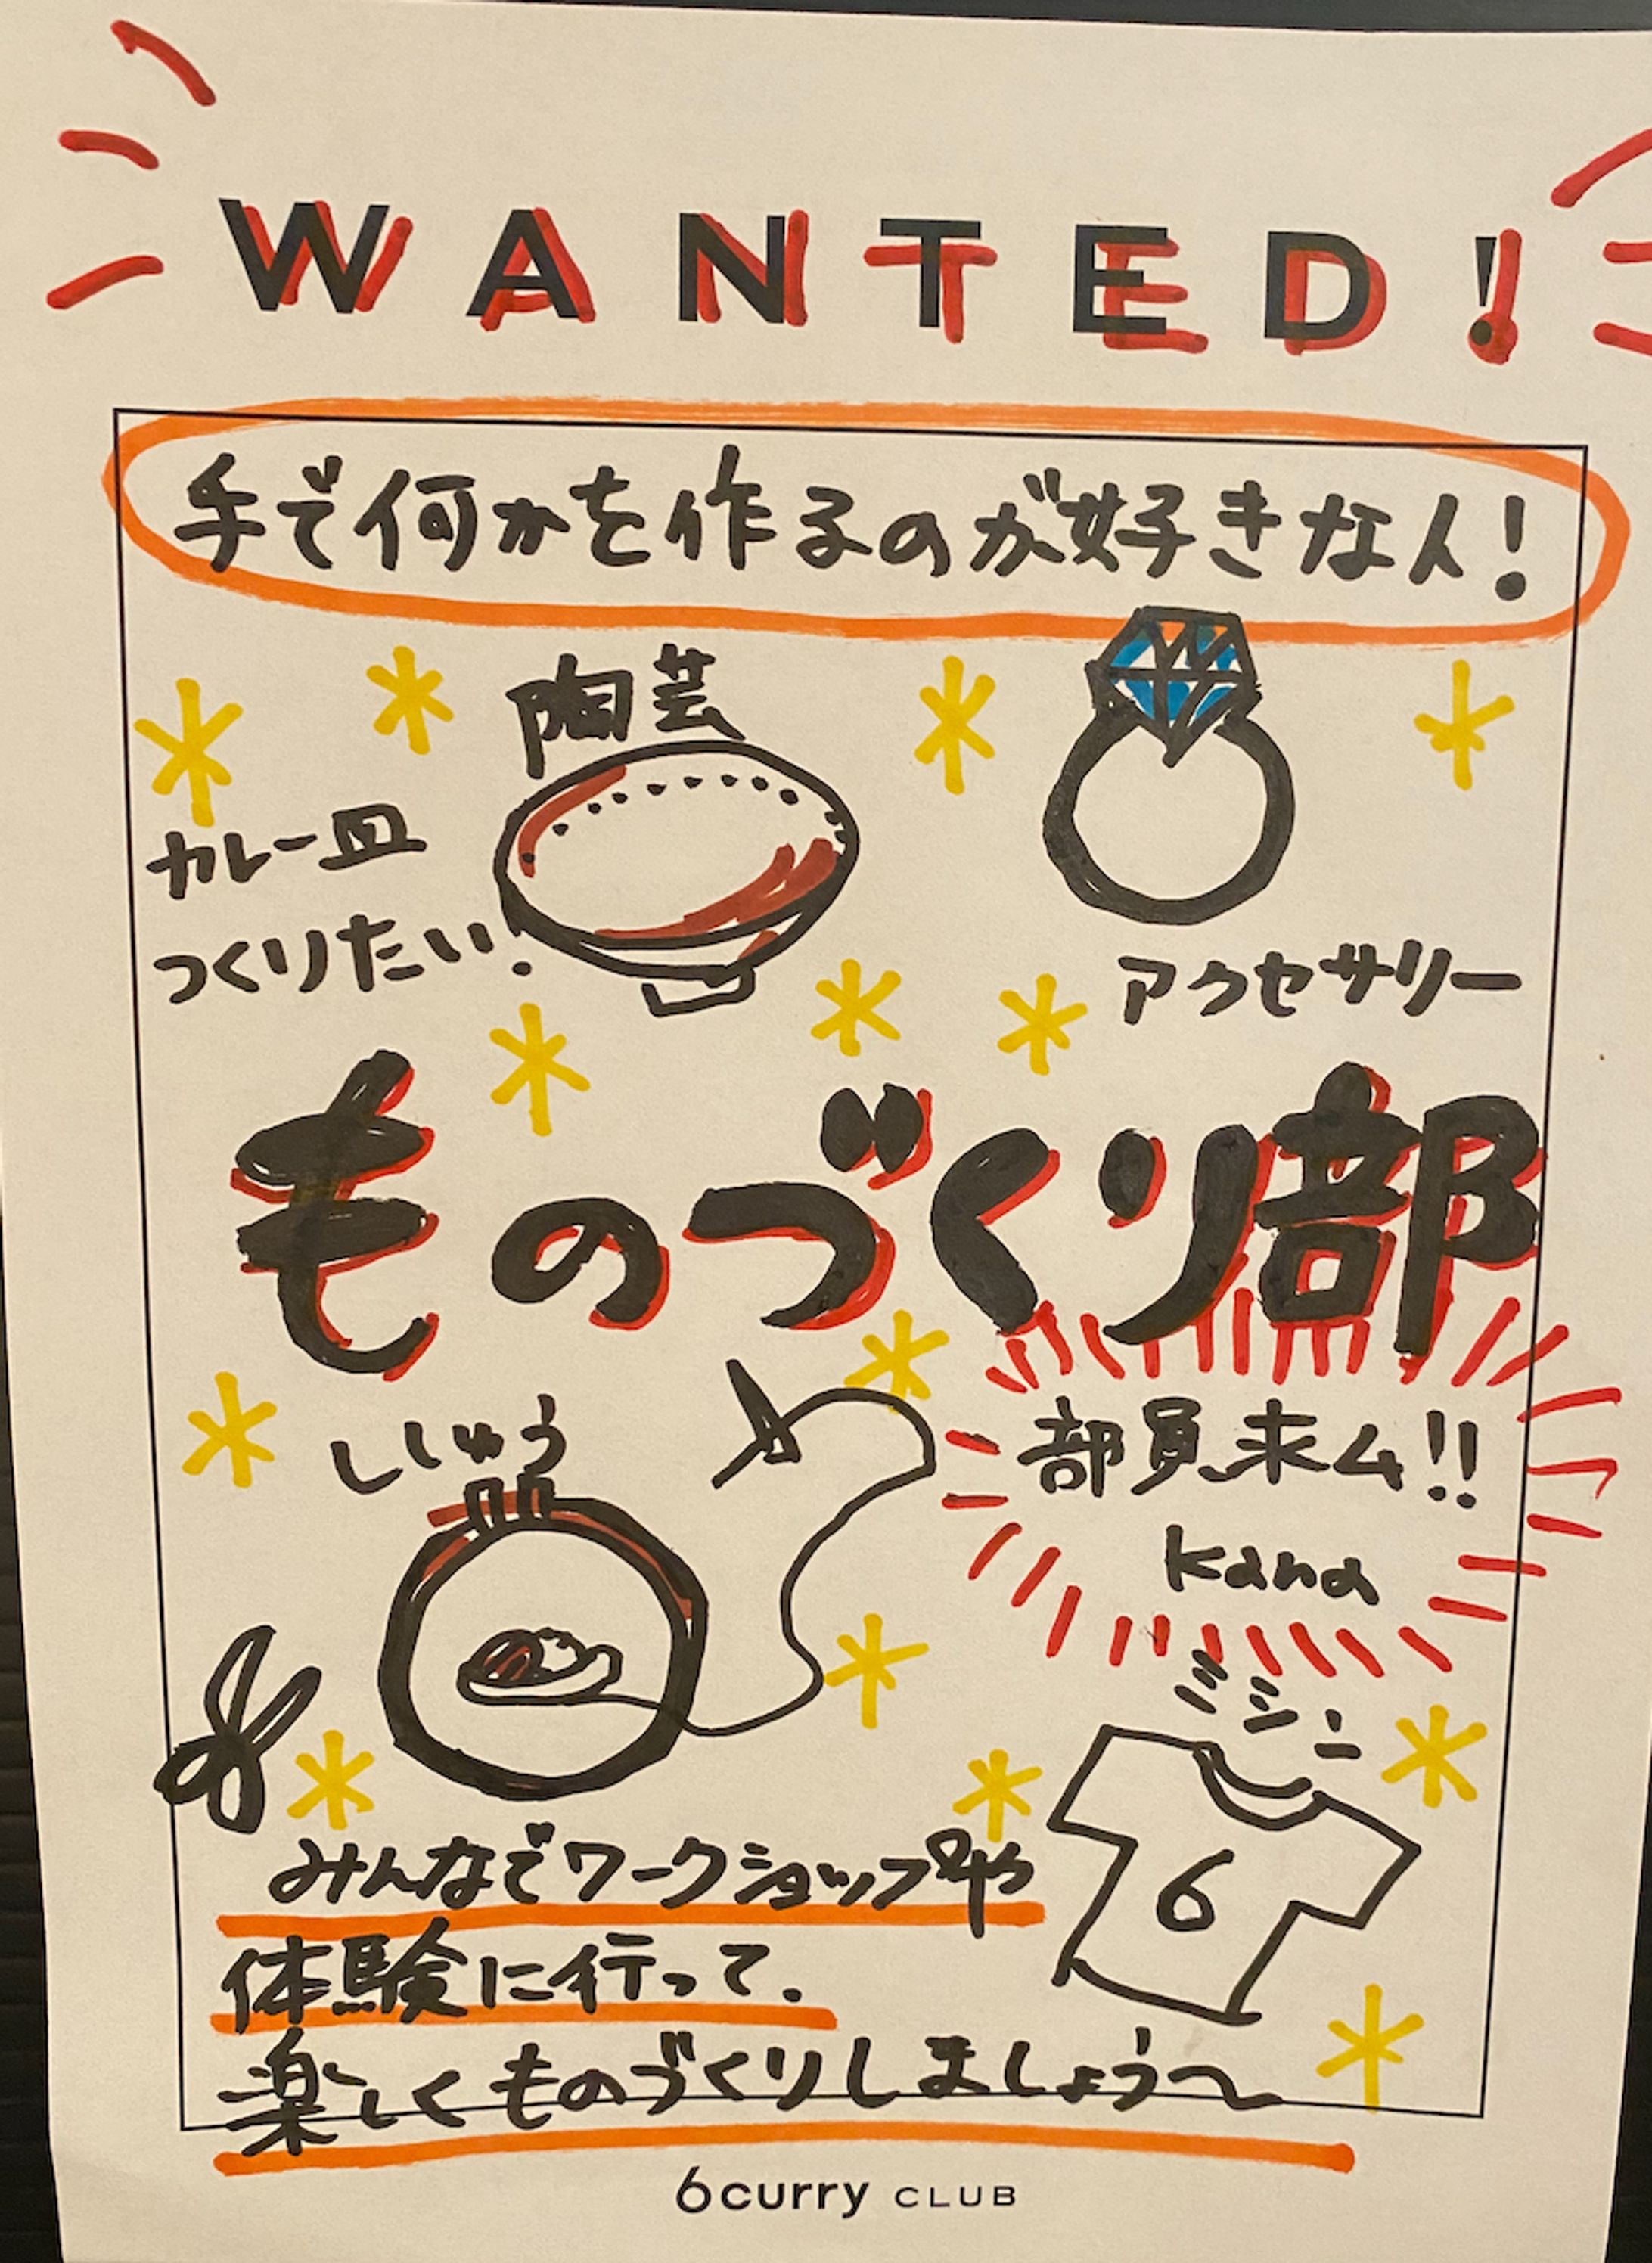 WANTED!
手で何かを作るのが好きな人!
陶芸
カレー皿
つくりたい!
アクセサリー
ものづくり部
ししゅう
部員求ム!!
kana
ミシン
6
みんなでワークショップや
体験に行って.
楽しくものづくりしましょう〜
6curry CLUB